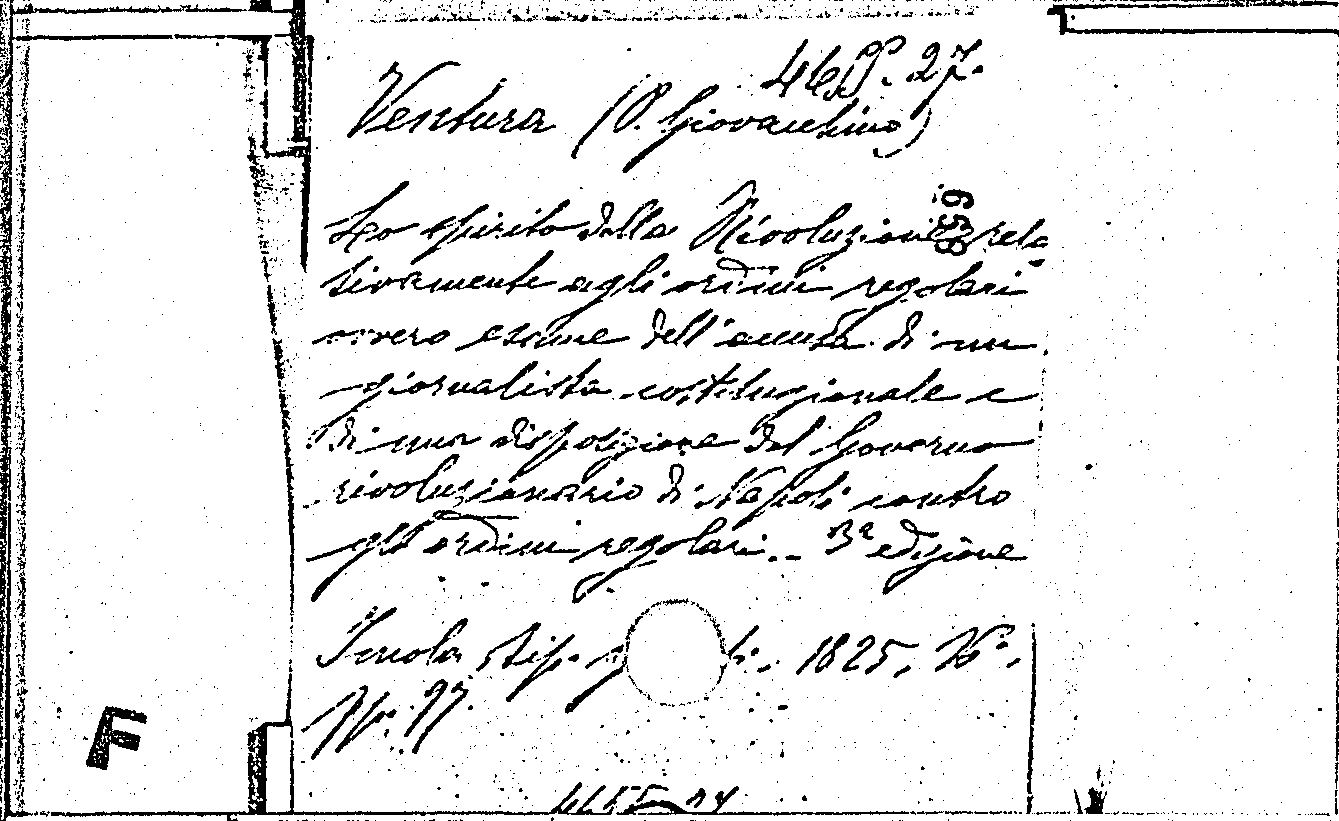 46 PP. 27.
Ventura (P. Giovacchino)
Lo spirito della Rivoluzione rela
tivamente agli ordini regolari
ovvero esame dell'accusa di un
giornalista costituzionale e
di una disposizione del Governo
rivoluzionario di Napoli contro
gli ordini regolari. - 3ª edizione
Imola, tip. 1825, 16°.
pp. 97.
F